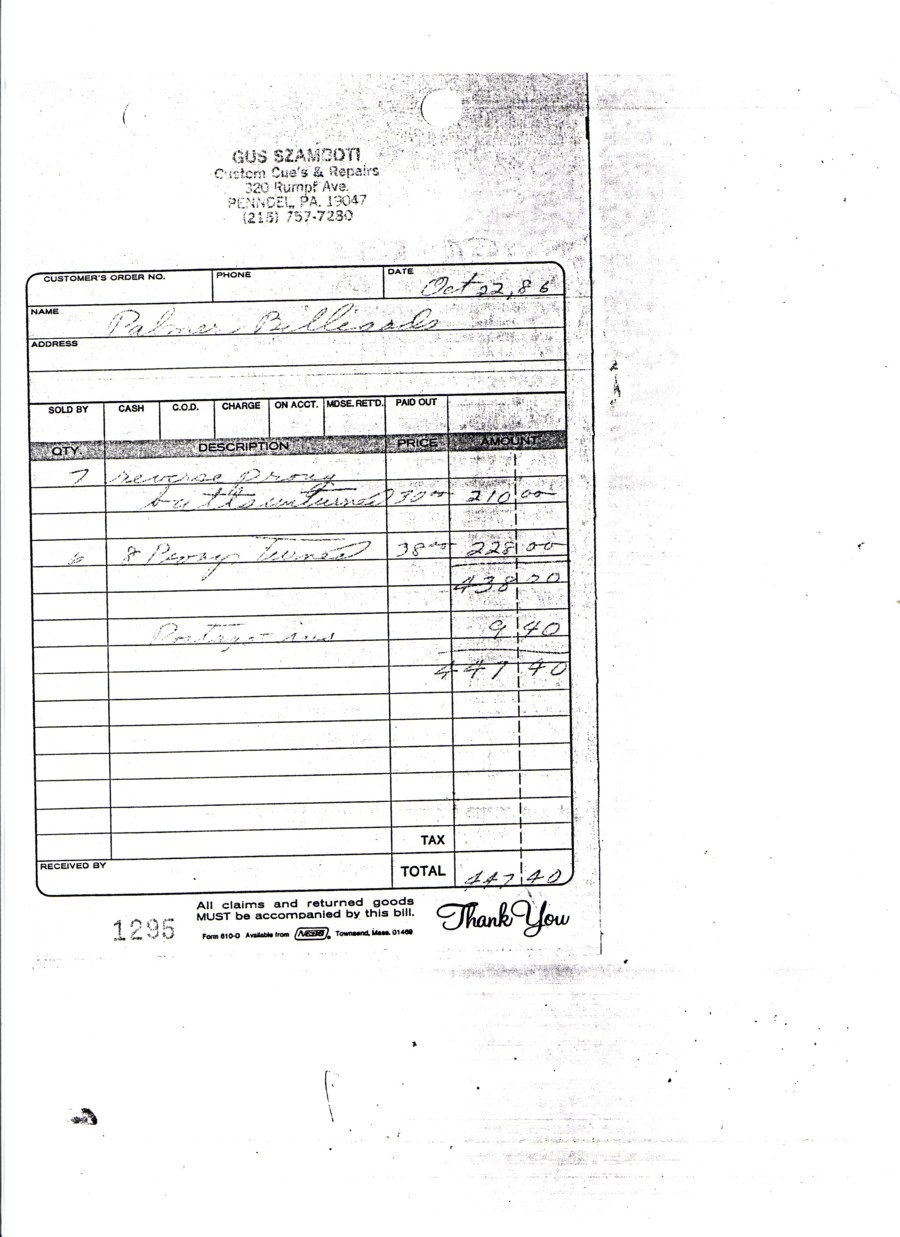 GUS SZAMBOTI
Custom Cue's & Repairs
320 Rumpf Ave.
PENNDEL, PA. 19047
(215) 757-7280
CUSTOMER'S ORDER NO. PHONE DATE Oct 22, 86
NAME Palmer Billiards
ADDRESS
SOLD BY CASH C.O.D. CHARGE ON ACCT. MDSE. RET'D. PAID OUT
QTY. DESCRIPTION PRICE AMOUNT
7 reverse prong
butts unturned 30 00 210 00
6 8 Prong Turned 38 00 228 00
438 00
Postage ins 9 40
447 40
TAX
RECEIVED BY TOTAL 447 40
All claims and returned goods
MUST be accompanied by this bill.
Thank You
1295
Form 610-D Available from NEBS, Townsend, Mass. 01469